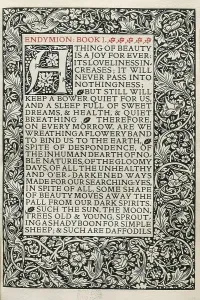 ENDYMION: BOOK I.
A THING OF BEAUTY
IS A JOY FOR EVER:
ITS LOVELINESS IN-
CREASES, IT WILL
NEVER PASS INTO
NOTHINGNESS;
BUT STILL WILL
KEEP A BOWER QUIET FOR US,
AND A SLEEP FULL OF SWEET
DREAMS, & HEALTH, & QUIET
BREATHING THEREFORE,
ON EVERY MORROW, ARE WE
WREATHING A FLOWERY BAND
TO BIND US TO THE EARTH,
SPITE OF DESPONDENCE, OF
THE INHUMAN DEARTH OF NO-
BLE NATURES, OF THE GLOOMY
DAYS, OF ALL THE UNHEALTHY
AND O'ER-DARKENED WAYS
MADE FOR OUR SEARCHING: YES,
IN SPITE OF ALL, SOME SHAPE
OF BEAUTY MOVES AWAY THE
PALL FROM OUR DARK SPIRITS.
SUCH THE SUN, THE MOON,
TREES OLD & YOUNG, SPROUT-
ING A SHADY BOON FOR SIMPLE
SHEEP; & SUCH ARE DAFFODILS